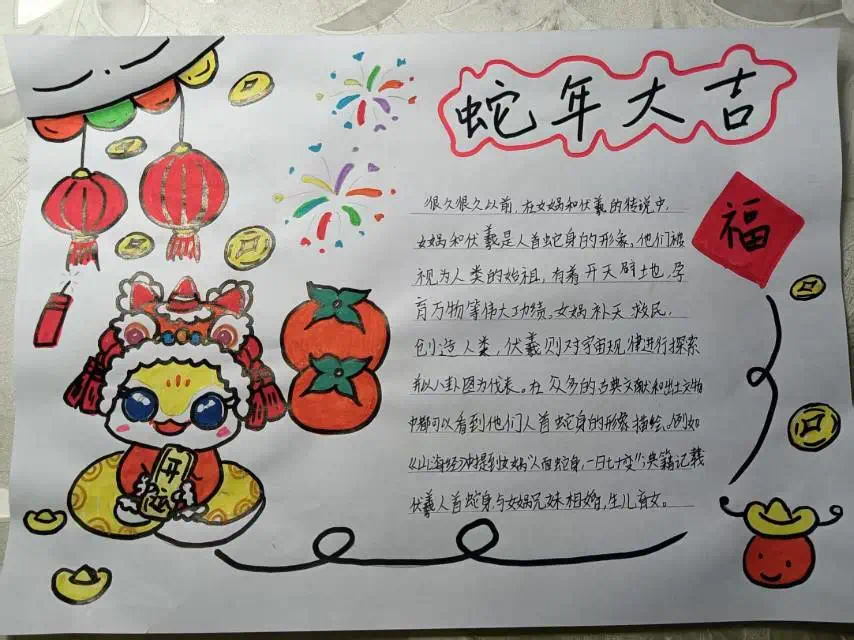 蛇年大吉
很久很久以前,在女娲和伏羲的传说中,
女娲和伏羲是人首蛇身的形象,他们被
视为人类的始祖,有着开天辟土地,孕
育万物等伟大功绩,女娲补天救民,
创造人类,伏羲则对宇宙规律进行探索
并以八卦图为代表。在众多的古典文献和出土文物
中都可以看到他们人首蛇身的形象描绘,例如
《山海经》中提到女娲"人面蛇身,一日七十变";典籍记载
伏羲人首蛇身,与女娲兄妹相婚,生儿育女。
福
开